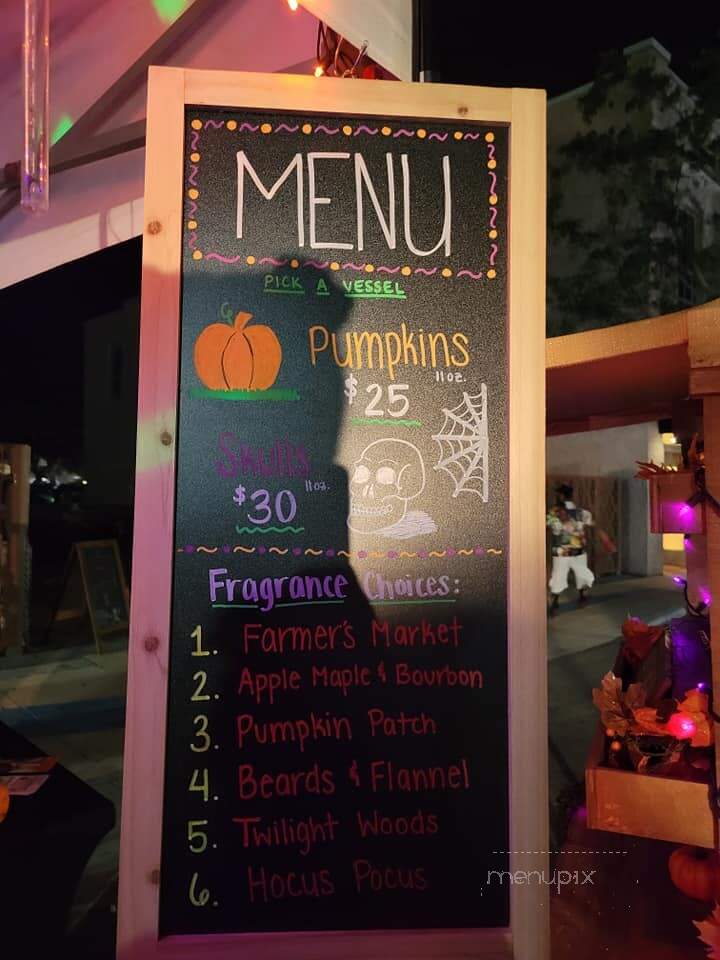 MENU
PICK A VESSEL
Pumpkins
$25 11 oz.
Skulls
$30 11 oz.
Fragrance Choices:
1. Farmer's Market
2. Apple Maple & Bourbon
3. Pumpkin Patch
4. Beards & Flannel
5. Twilight Woods
6. Hocus Pocus
menupix